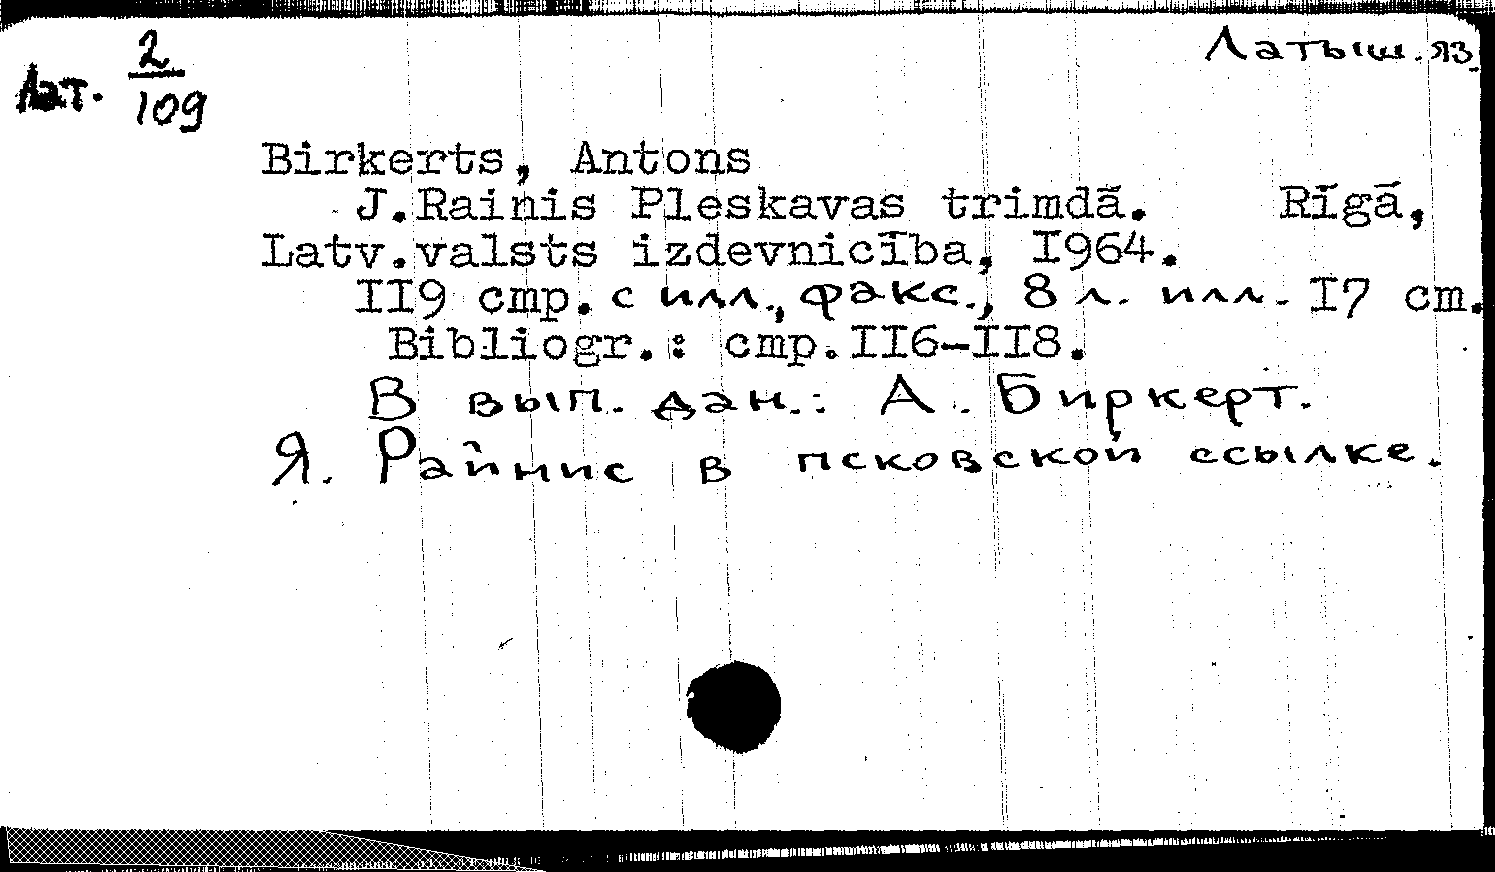 Латыш. яз.
Лат. 2/109
Birkerts, Antons
J.Rainis Pleskavas trimdā. Rīgā,
Latv.valsts izdevnicība, I964.
II9 стр. с илл., факс., 8 л. илл. I7 cm.
Bibliogr.: стр.II6-II8.
В вып. дан.: А. Биркерт.
Я. Райнис в псковской ссылке.